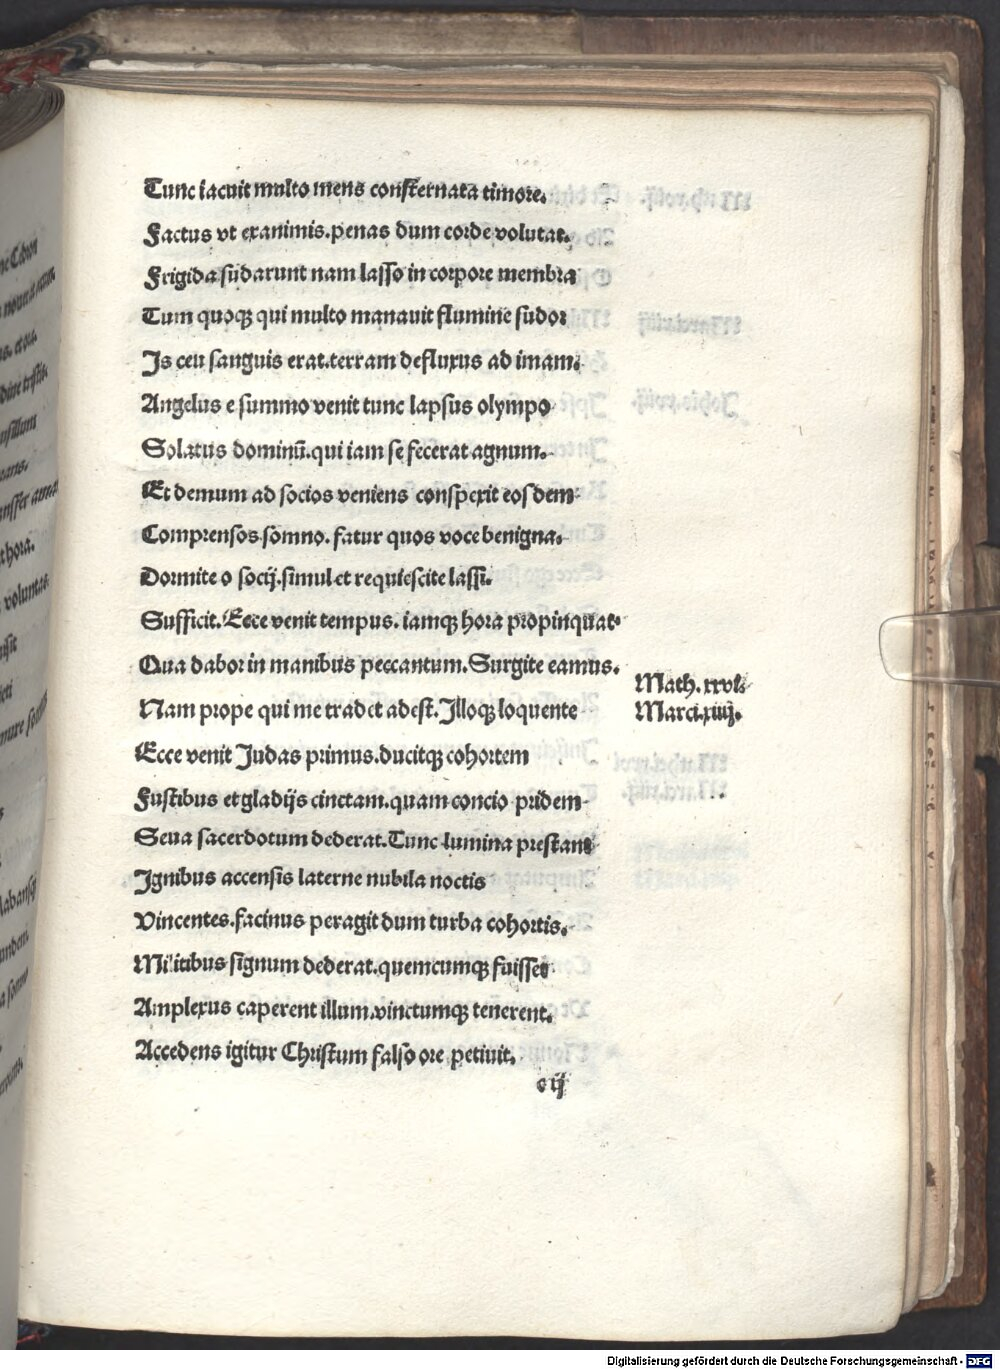 Tunc iacuit multo mens consternata timore.
Factus vt exanimis.penas dum corde volutat.
Frigida sudarunt nam lasso in corpore membra
Tum quoqꝫ qui multo manauit flumine sudor
Is ceu sanguis erat.terram defluxus ad imam.
Angelus e summo venit tunc lapsus olympo
Solatus dominū.qui iam se fecerat agnum.
Et demum ad socios veniens conspexit eosdem
Comprensos somno. fatur quos voce benigna.
Dormite o socij.simul et requiescite lassi.
Sufficit.Ecce venit tempus. iamqꝫ hora propinquat
Qua dabor in manibus peccantum.Surgite eamus.
Math.xxvi.
Nam prope qui me tradet adest.Illoqꝫ loquente
Marci.xiiij.
Ecce venit Judas primus.ducitqꝫ cohortem
Fustibus et gladijs cinctam.quam concio pridem
Seua sacerdotum dederat.Tunc lumina prestant
Ignibus accensis laterne nubila noctis
Vincentes.facinus peragit dum turba cohortis.
Militibus signum dederat.quemcumqꝫ fuisset
Amplexus caperent illum.vinctumqꝫ tenerent.
Accedens igitur Christum falso ore petiuit.
c ij
Digitalisierung gefördert durch die Deutsche Forschungsgemeinschaft - DFG